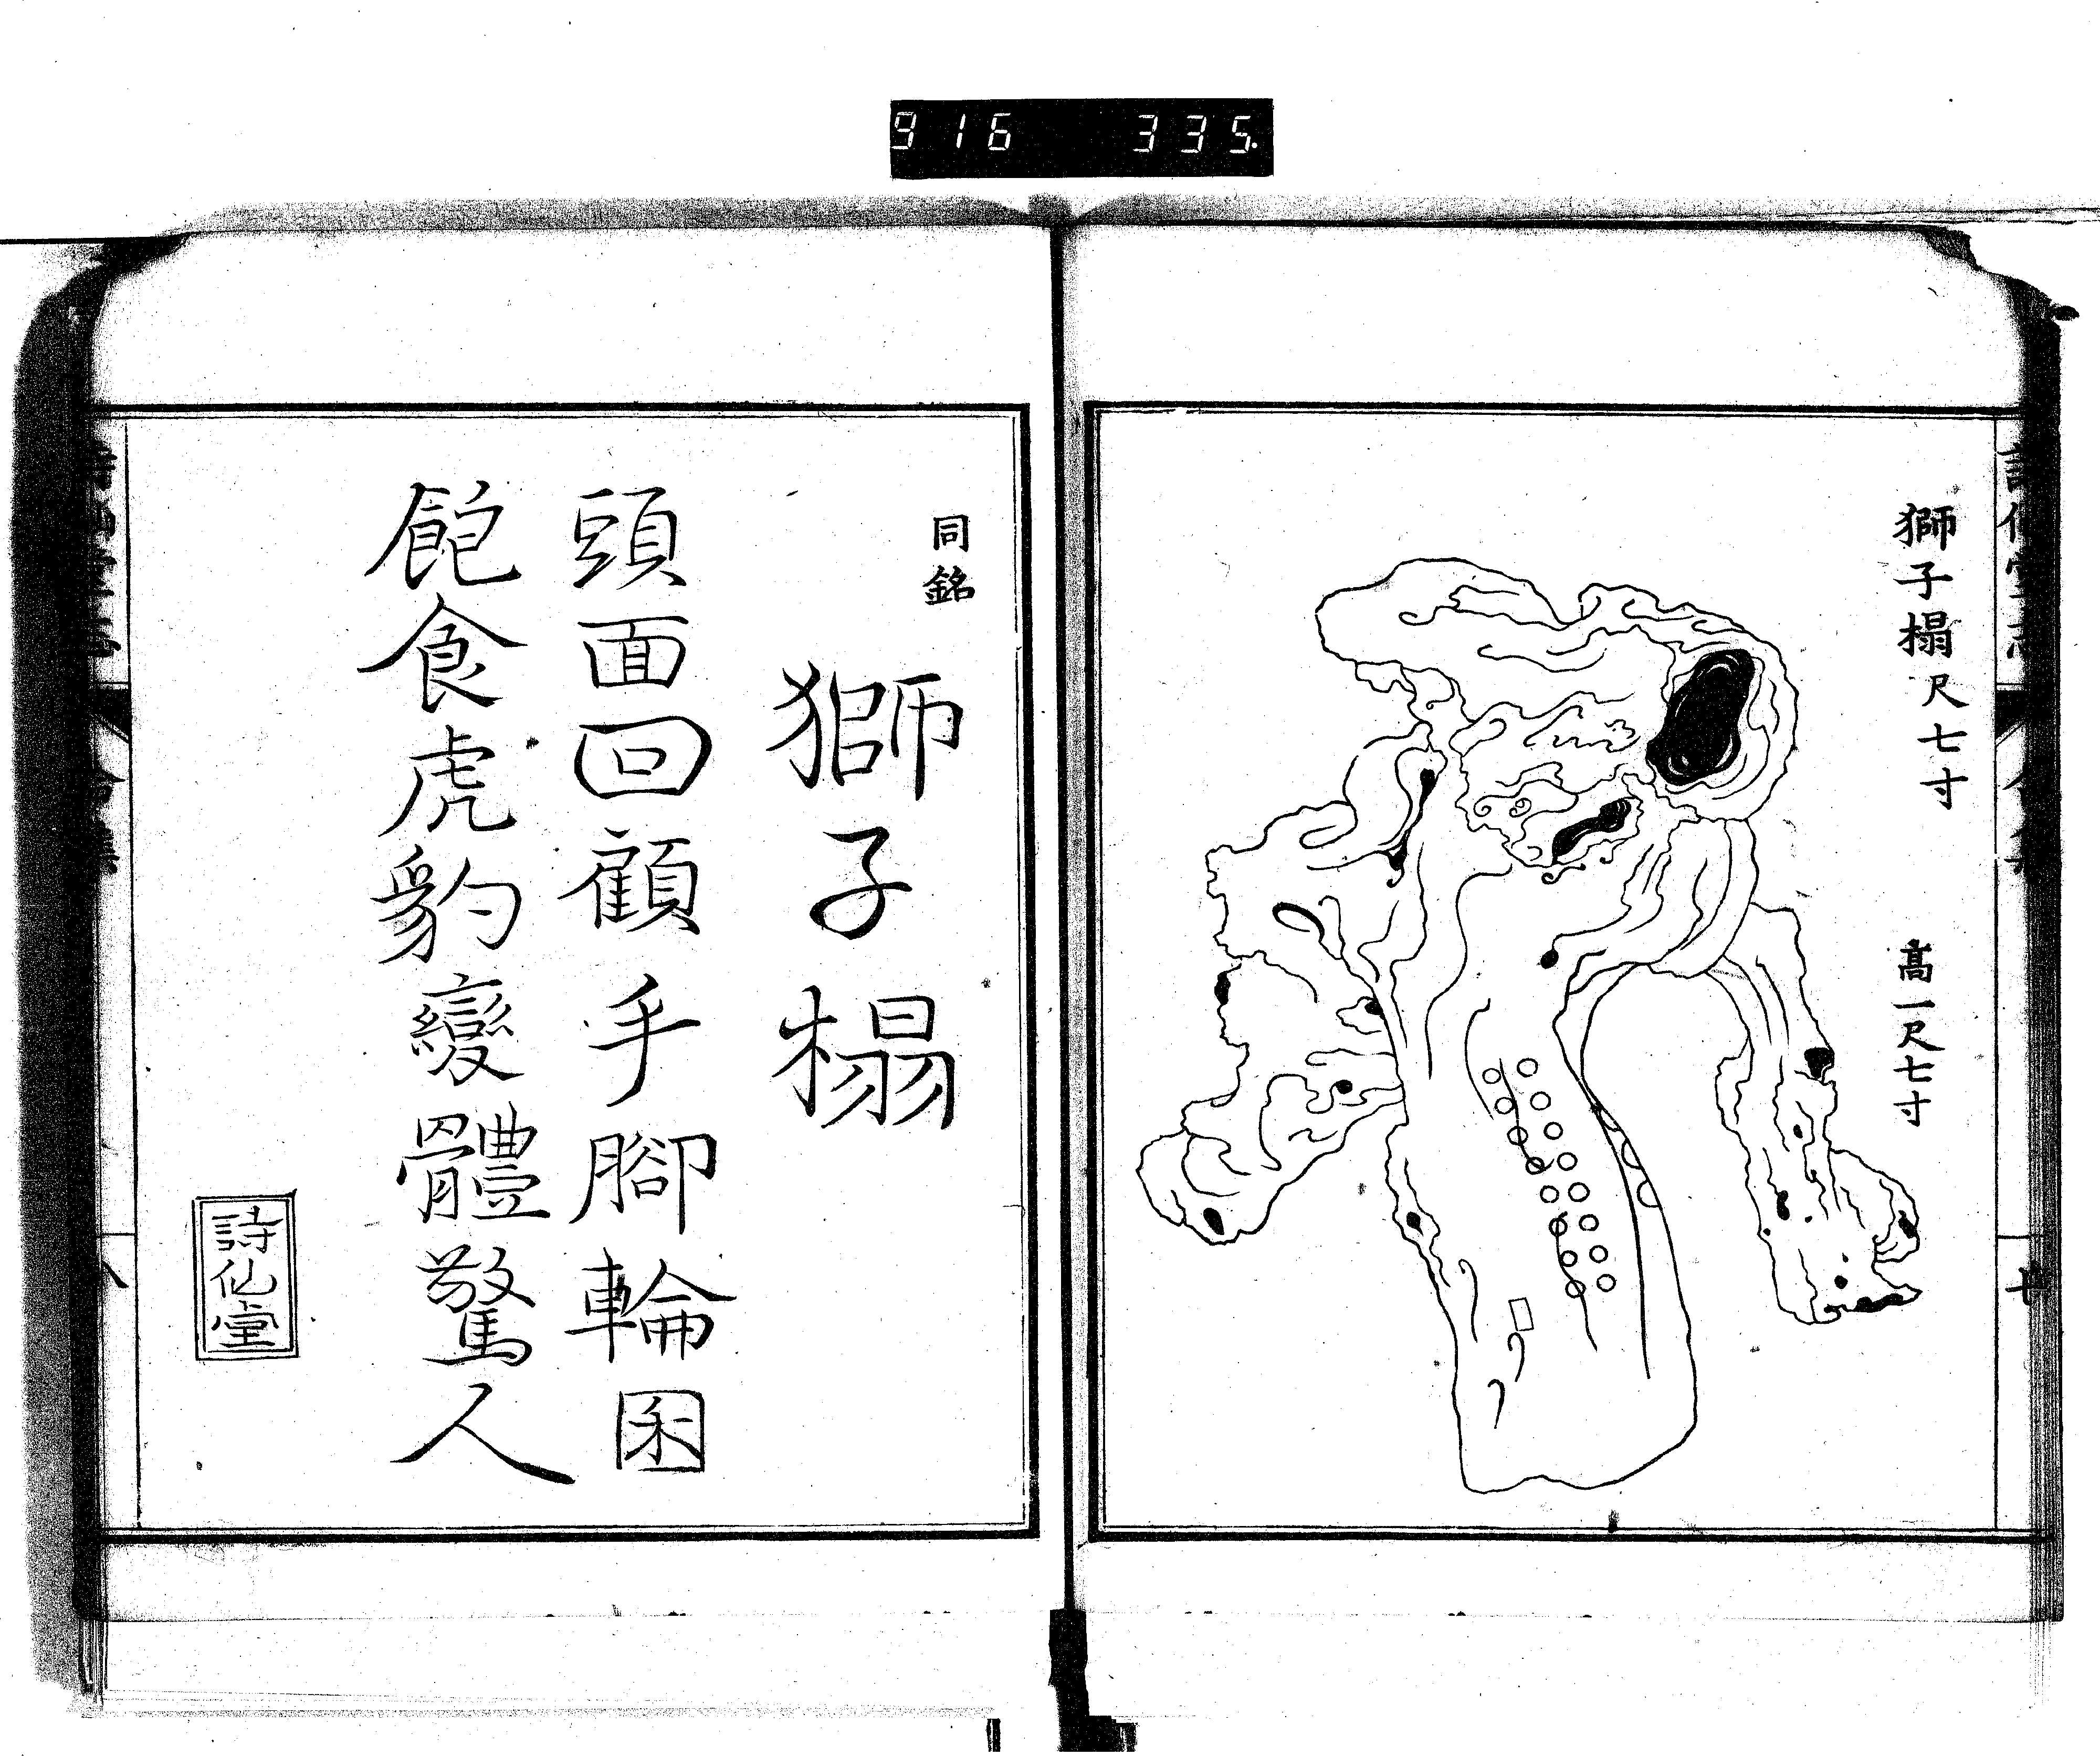 916 335.
獅子榻尺七寸
高一尺七寸
同銘
獅子榻
頭面回顧手腳輪囷
飽食虎豹變體驚人
詩仙堂